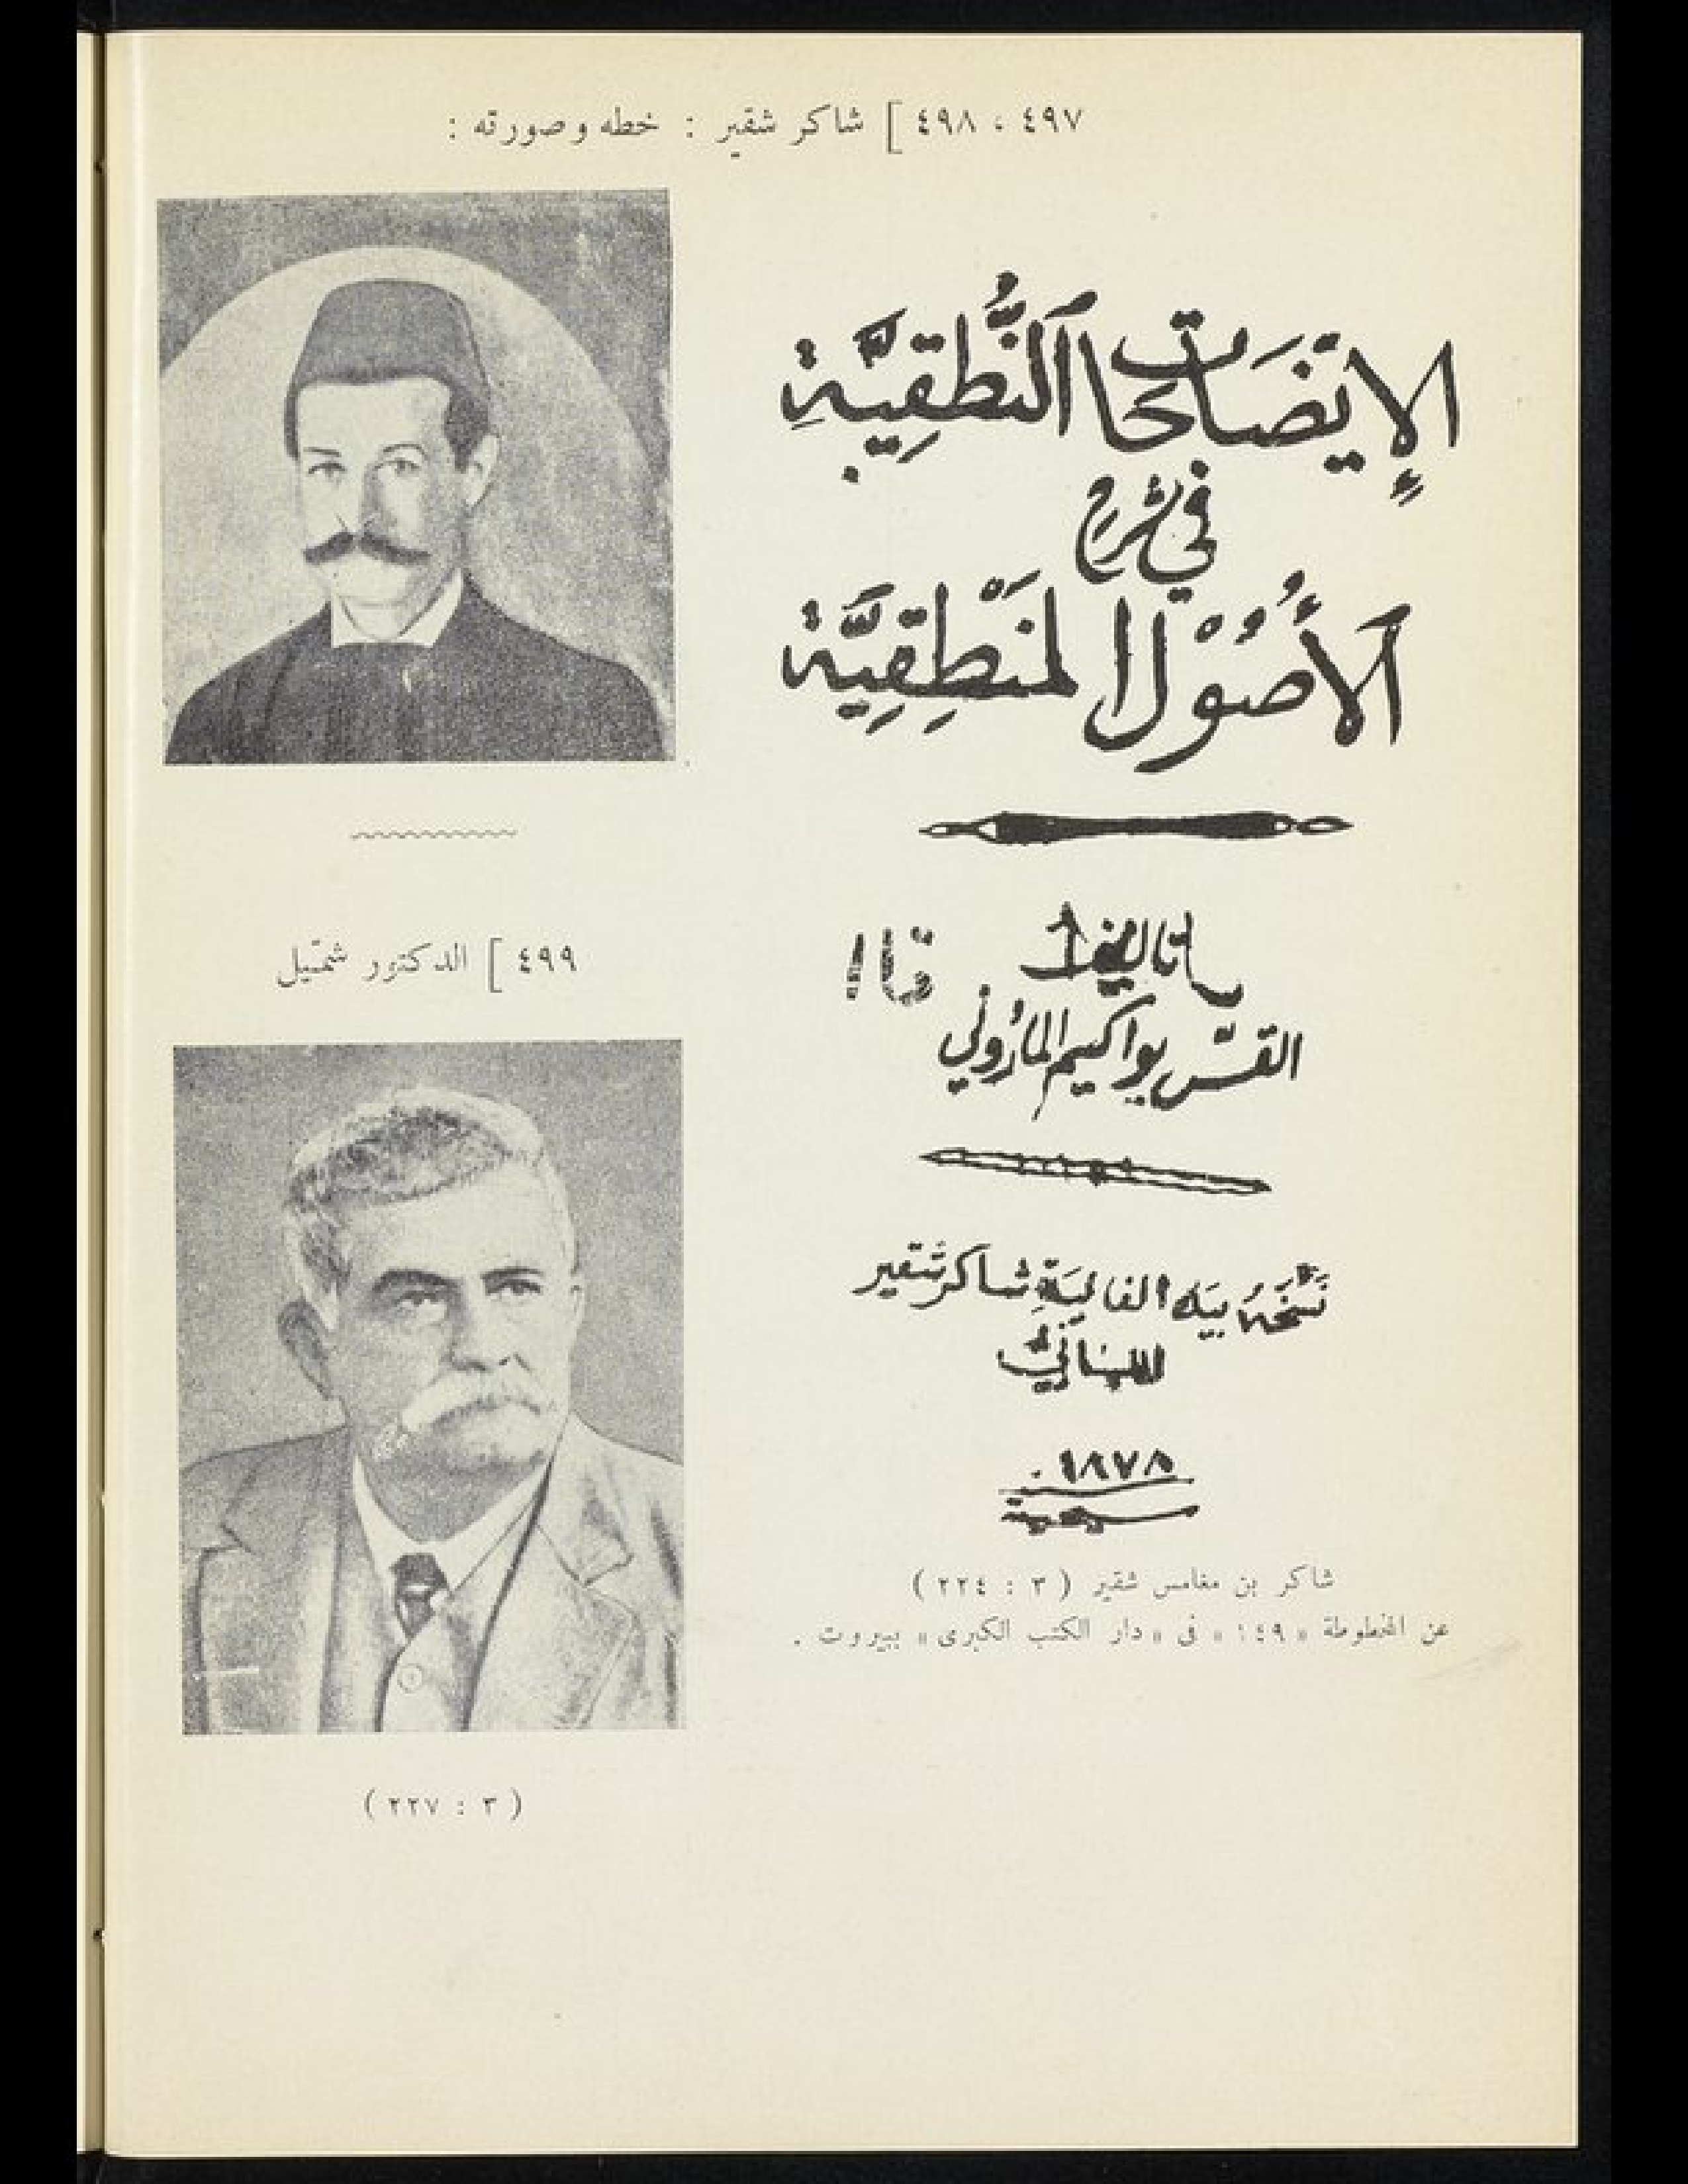 ٤٩٧ ، ٤٩٨ ] شاكر شقير : خطه وصورته :
الإيضَاحات ٱلنُّطقيَّةِ
في شرح
ٱلأُصُوْل المَنْطِقِيَّة
تاليف
القسّ يواكيم المارُوني
نَسَخَهُ بيَدِهِ الفانيَةِ شاكر شقير
اللبناني
١٨٧٨
سنة
مسيحية
شاكر بن مغامس شقير ( ٣ : ٢٢٤ )
عن المخطوطة « ١٤٩ » في « دار الكتب الكبرى » ببيروت .
٤٩٩ ] الدكتور شمّيل
( ٣ : ٢٢٧ )